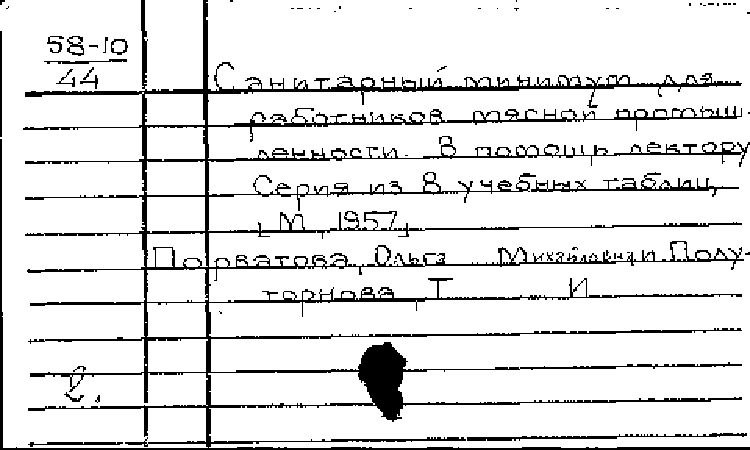 58-10
44
Санитарный минимум для
работников мясной промыш-
ленности. В помощь лектору
Серия из 8 учебных таблиц,
[М, 1957]
Порватова, Ольга Михайловна и Полу-
торнова, Т И
2.